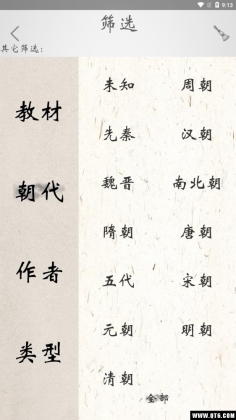 9:13
筛选
其它筛选：
教材
朝代
作者
类型
未知 周朝
先秦 汉朝
魏晋 南北朝
隋朝 唐朝
五代 宋朝
元朝 明朝
清朝
全部
WWW.QT6.COM